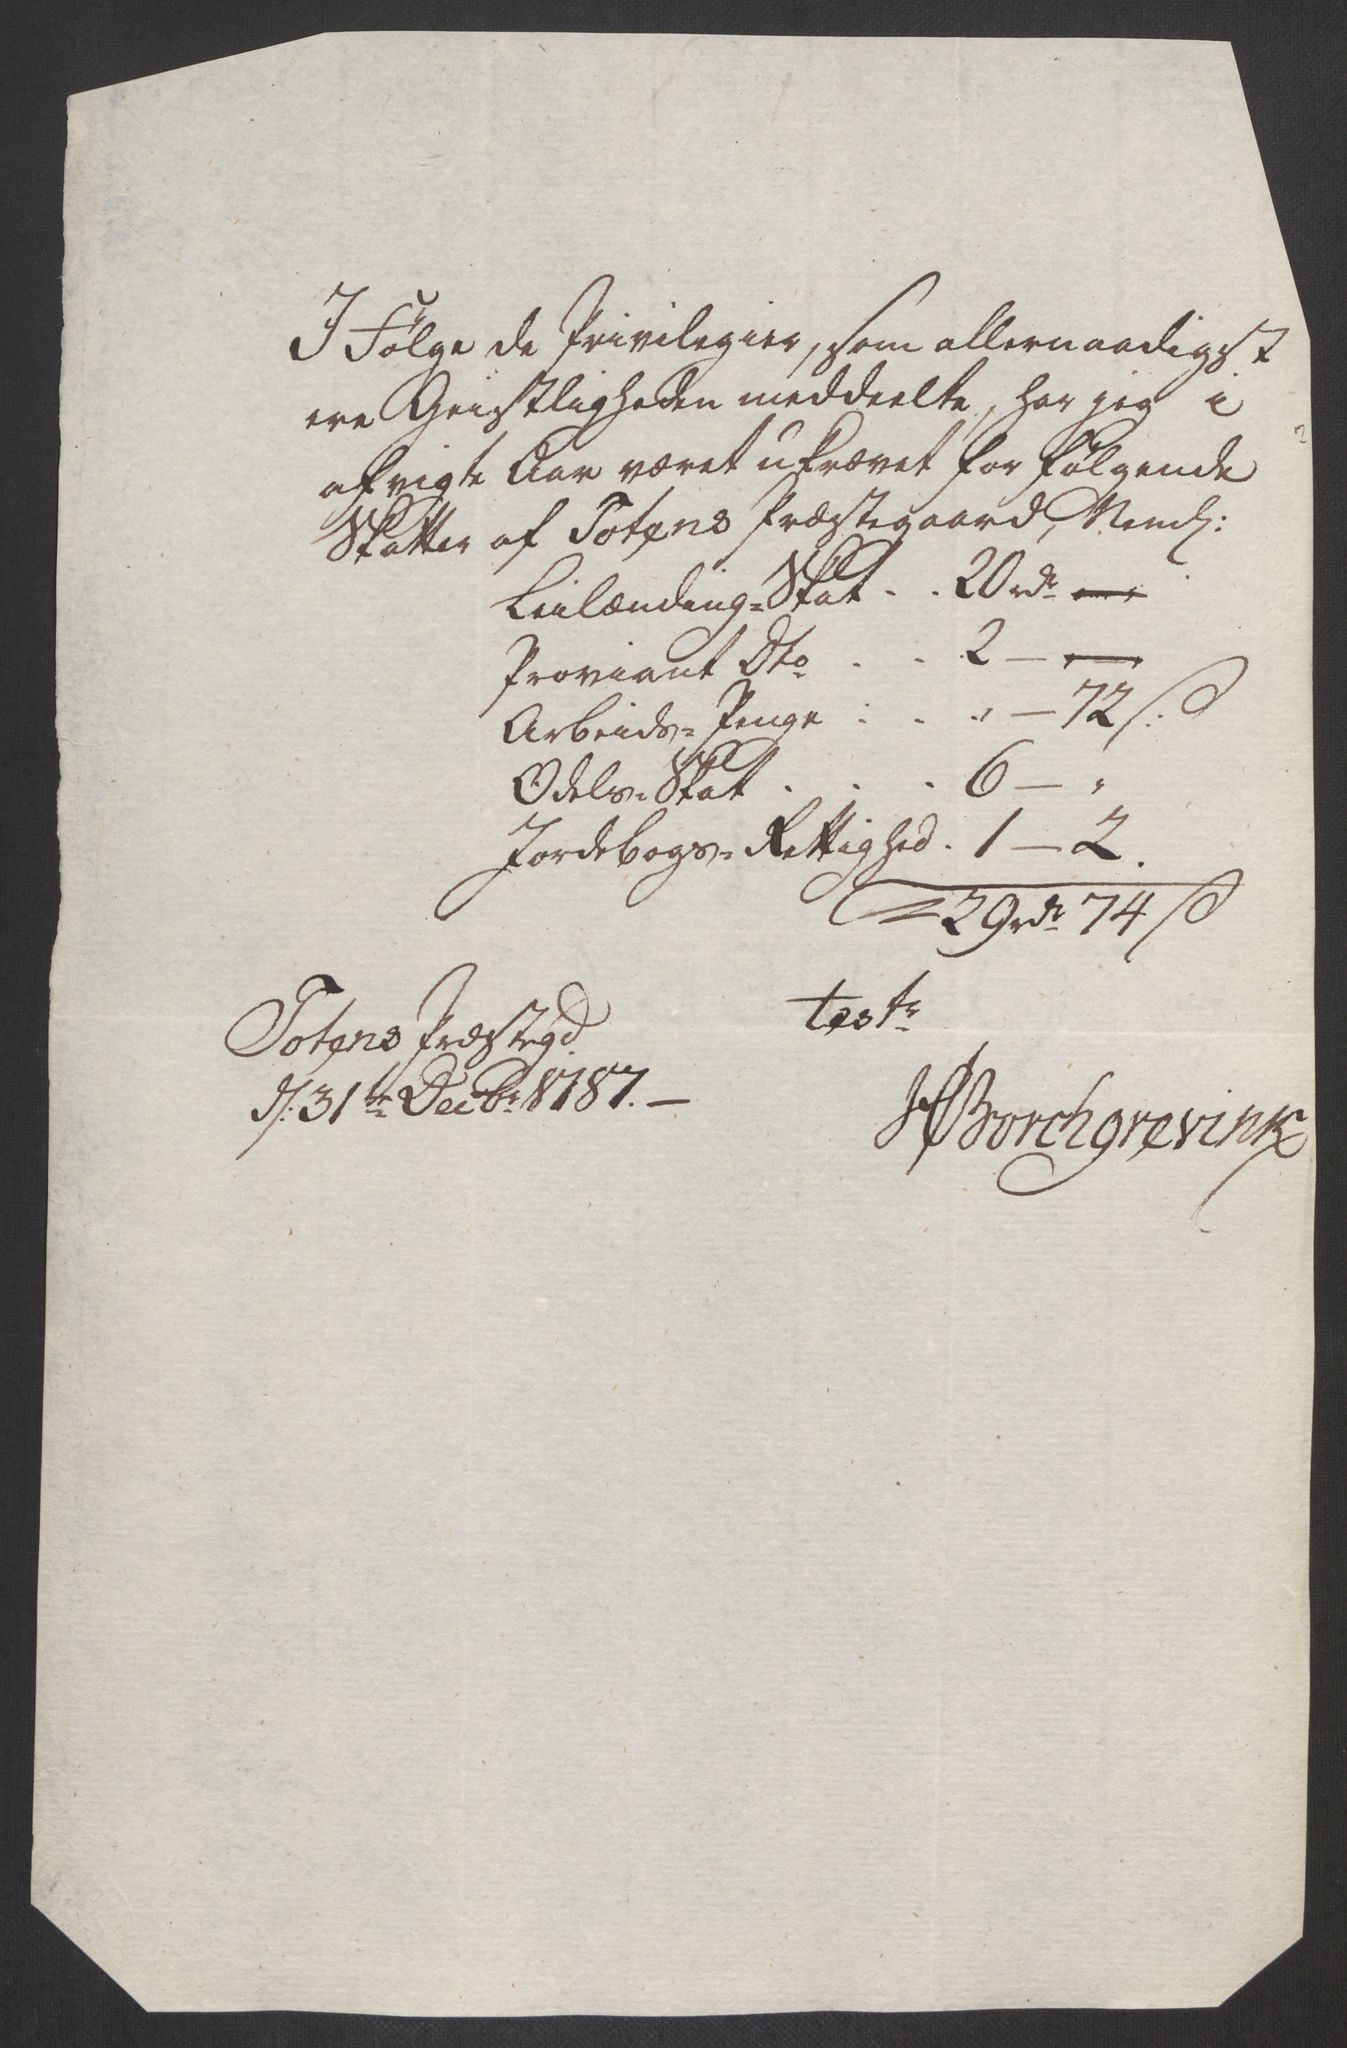 I Følge de Privilegier, som allernaadigst
ere Geistligheden meddeelte, har jeg i
afvigte Aar været ukrævet for følgende
Skatter af Totens Præstegaard, Neml:
Leilænding-Skat . . 20 rdr —
Proviant Dto . . 2 — —
Arbeids-Penge . . . " — 72 ß
Odels-Skat . . . 6 — "
Jordebogs-Rettighed . 1 — 2.
29 rdr 74 ß
Totens Præstegd
d: 31te Decbr 1787. —
test:
Borchgrevink